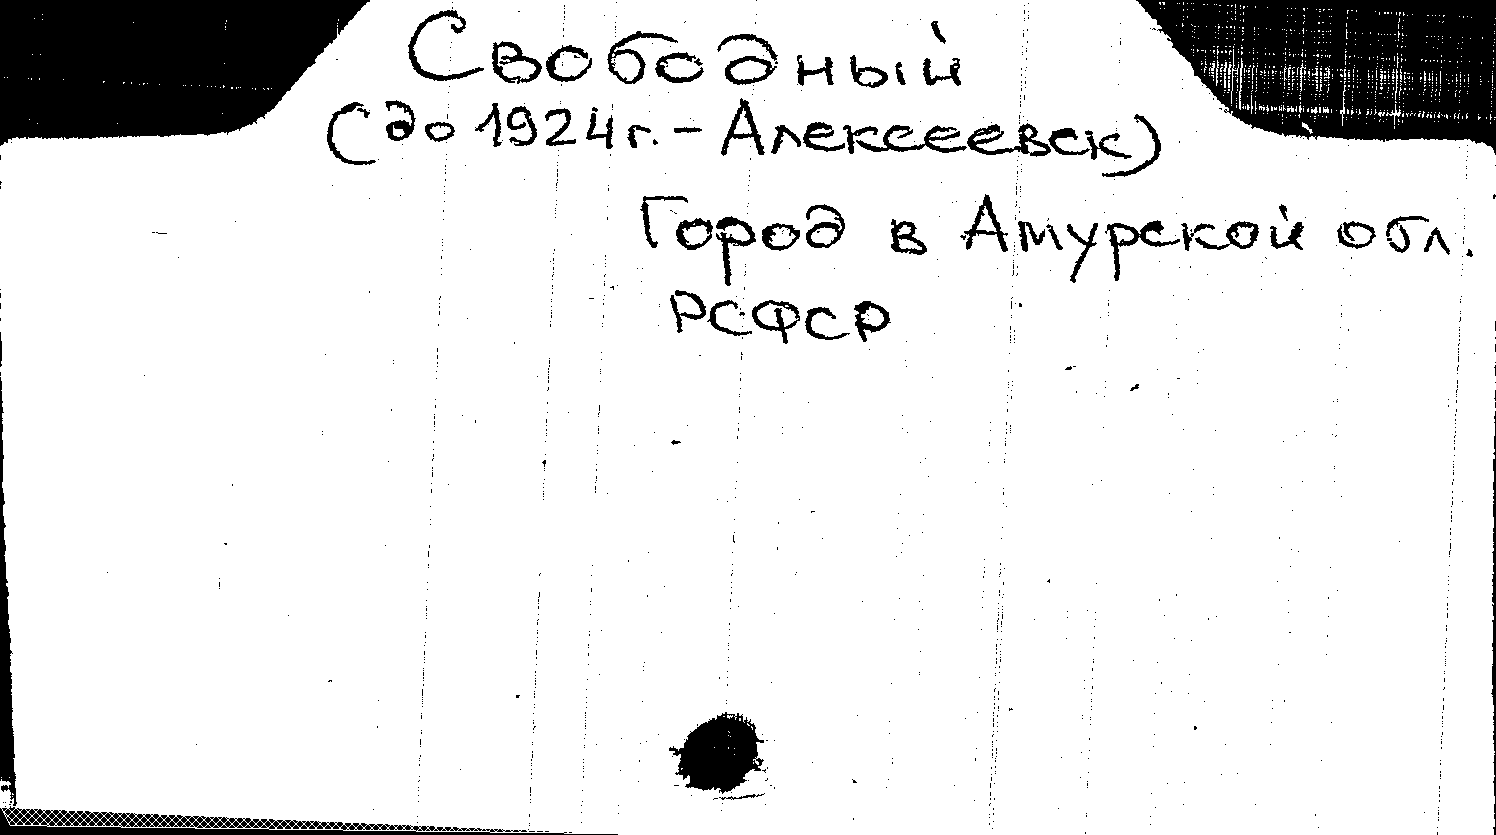 Свободный
(до 1924г. - Алексеевск)
Город в Амурской обл.
РСФСР